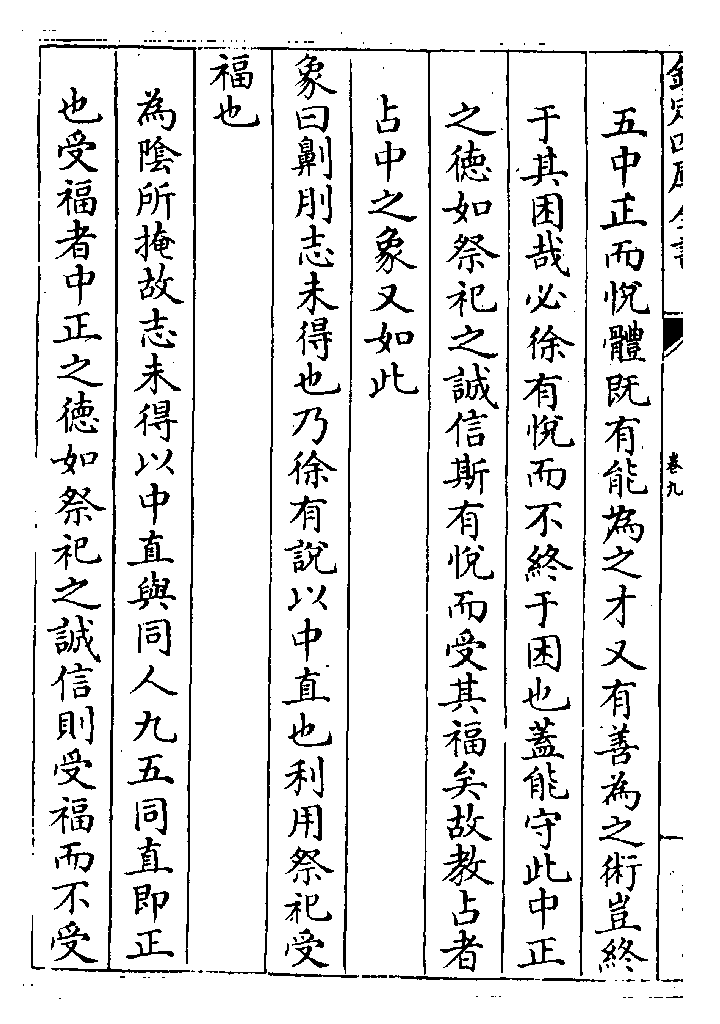 欽定四庫全書
卷九
五中正而悅體既有能為之才又有善為之術豈終
于其困哉必徐有悅而不終于困也蓋能守此中正
之德如祭祀之誠信斯有悅而受其福矣故教占者
占中之象又如此
象曰劓刖志未得也乃徐有說以中直也利用祭祀受
福也
為陰所掩故志未得以中直與同人九五同直即正
也受福者中正之德如祭祀之誠信則受福而不受